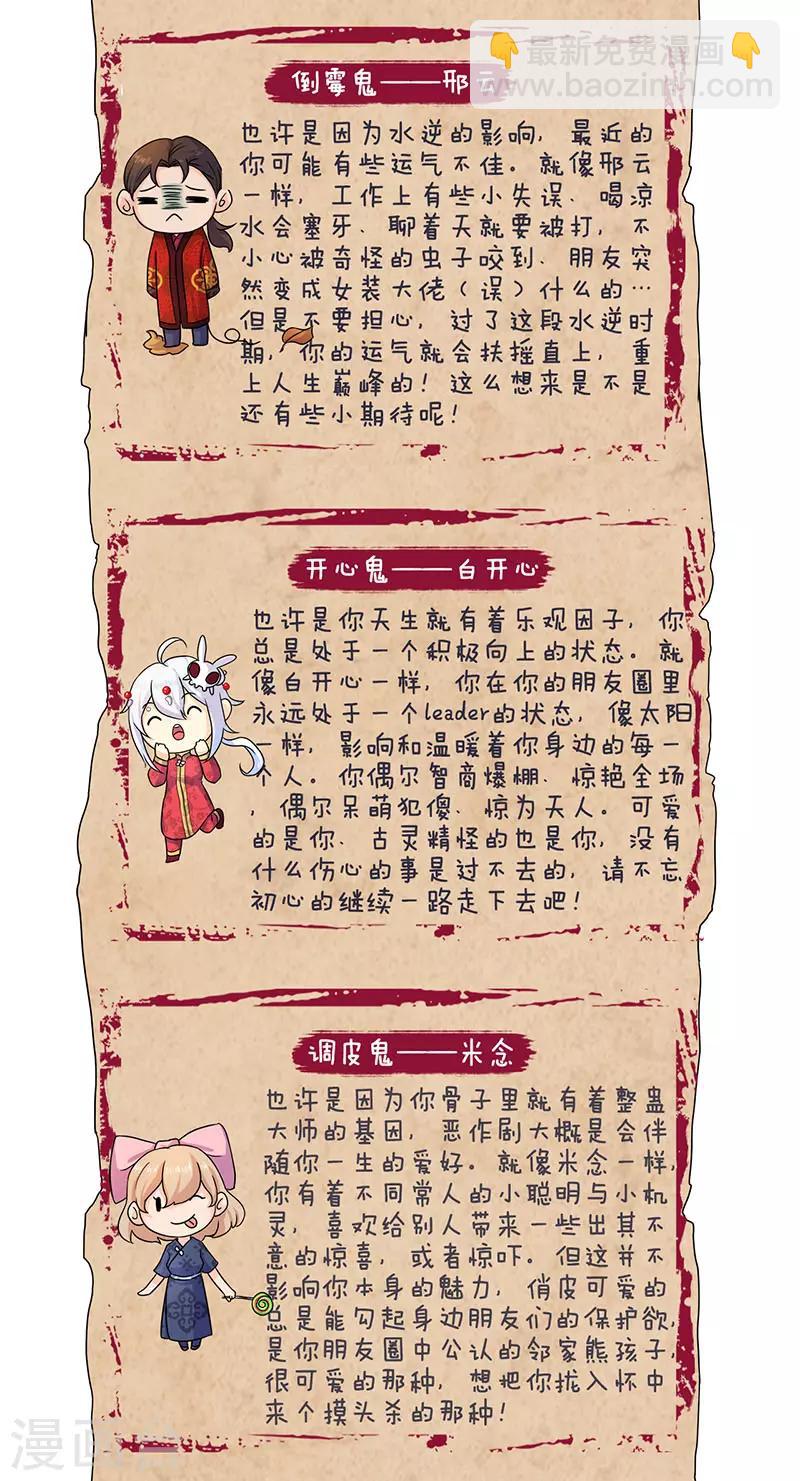 最新免费漫画
www.baozimh.com
倒霉鬼——邢云
也许是因为水逆的影响，最近的
你可能有些运气不佳。就像邢云
一样，工作上有些小失误、喝凉
水会塞牙、聊着天就要被打，不
小心被奇怪的虫子咬到、朋友突
然变成女装大佬（误）什么的…
但是不要担心，过了这段水逆时
期，你的运气就会扶摇直上，重
上人生巅峰的！这么想来是不是
还有些小期待呢！
开心鬼——白开心
也许是你天生就有着乐观因子，你
总是处于一个积极向上的状态。就
像白开心一样，你在你的朋友圈里
永远处于一个leader的状态，像太阳
一样，影响和温暖着你身边的每一
个人。你偶尔智商爆棚、惊艳全场
，偶尔呆萌犯傻、惊为天人。可爱
的是你、古灵精怪的也是你，没有
什么伤心的事是过不去的，请不忘
初心的继续一路走下去吧！
调皮鬼——米念
也许是因为你骨子里就有着整蛊
大师的基因，恶作剧大概是会伴
随你一生的爱好。就像米念一样，
你有着不同常人的小聪明与小机
灵，喜欢给别人带来一些出其不
意的惊喜，或者惊吓。但这并不
影响你本身的魅力，俏皮可爱的
总是能勾起身边朋友们的保护欲，
是你朋友圈中公认的邻家熊孩子，
很可爱的那种，想把你拢入怀中
来个摸头杀的那种！
漫画台